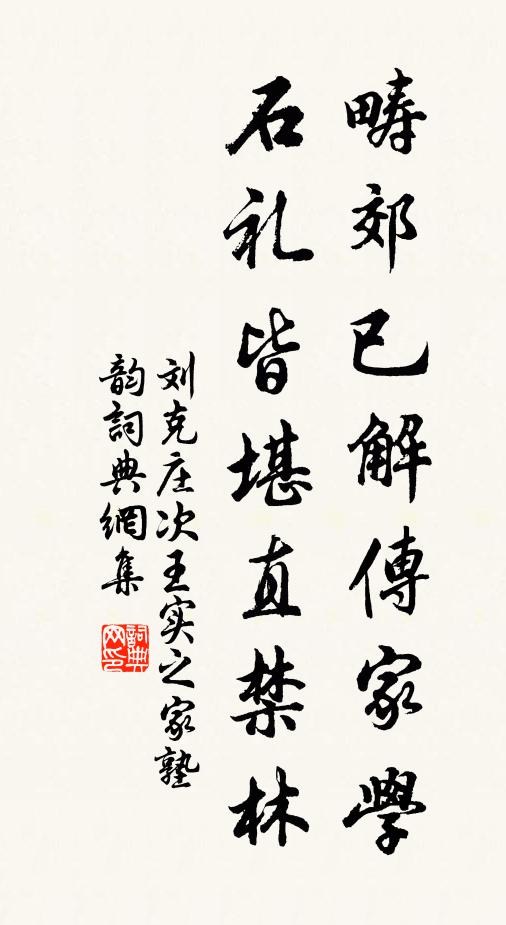 畴郊已解傳家學
石礼皆堪直禁林
刘克庄次王实之家塾
韵詞典網集
詞典
网印